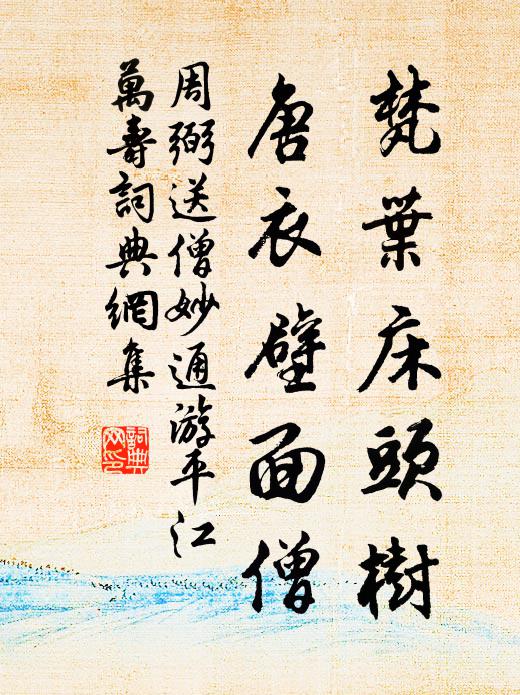 梵葉床頭樹
唐衣壁面僧
周弼送僧妙通游平江
萬壽詞典網集
詞典
网印